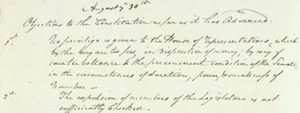 August 30th
Objections to the Constitution as far as it has Advanced
1st No privilege is given to the House of Representatives, which
by the way are too few, in disposition of money, by way of
counter ballance to the permanent condition of the Senate
in the circumstances of duration, power, & smallness of
Number —
2d The expulsion of members of the Legislature is not
sufficiently Checked.